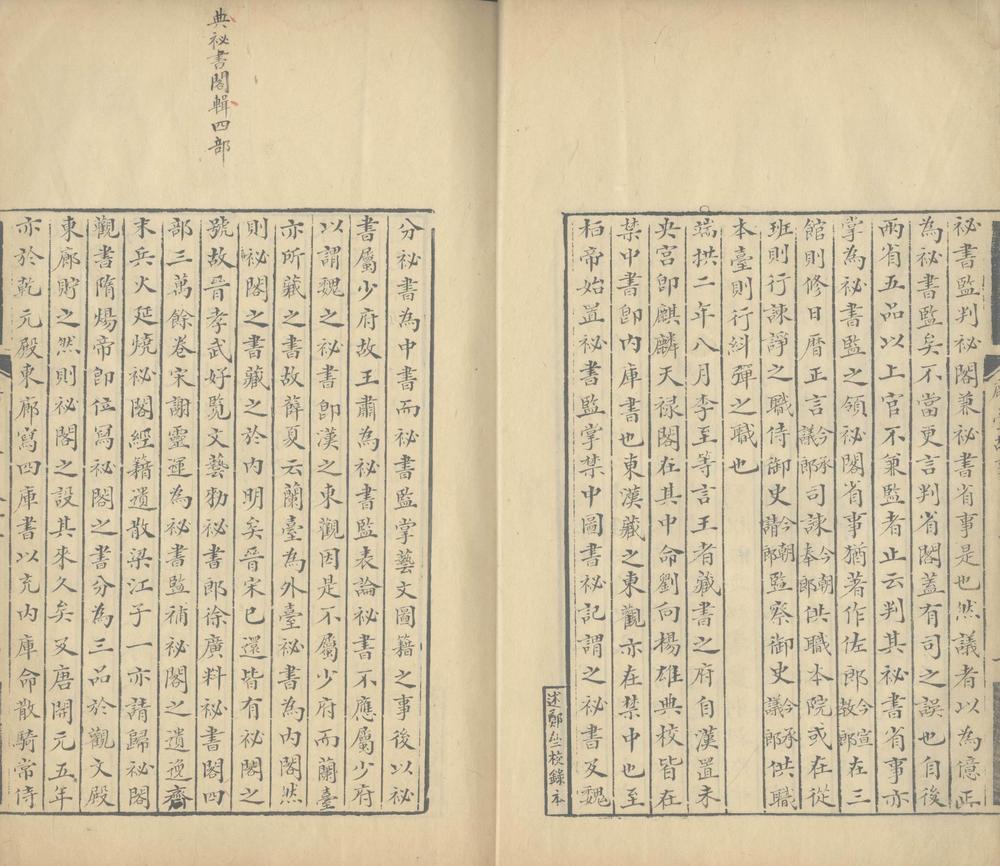 祕書監判祕閣兼祕書省事是也然議者以為億正
為祕書監矣不當更言判省閣蓋有司之誤也自後
兩省五品以上官不兼監者止云判其祕書省事亦
掌為祕書監之領祕閣省事猶著作佐郎今宣教郎在三
館則修日曆正言今承議郎司諫今朝奉郎供職本院或在從
班則行諫諍之職侍御史今朝請郎監察御史今承議郎供職
本臺則行糾彈之職也
端拱二年八月李至等言王者藏書之府自漢置未
央宮即麒麟天祿閣在其中命劉向楊雄典校皆在
禁中書即內庫書也東漢藏之東觀亦在禁中也至
栢帝始置祕書監掌禁中圖書祕記謂之祕書及魏
述鄭齋校錄本
典祕書閣輯四部
分祕書為中書而祕書監掌藝文圖籍之事後以祕
書屬少府故王肅為祕書監表論祕書不應屬少府
以謂魏之祕書即漢之東觀因是不屬少府而蘭臺
亦所藏之書故薛夏云蘭臺為外臺祕書為內閣然
則祕閣之書藏之於內明矣晉宋已還皆有祕閣之
號故晉孝武好覧文藝勑祕書郎徐廣料祕書閣四
部三萬餘卷宋謝靈運為祕書監補祕閣之遺逸齊
末兵火延燒祕閣經籍遺散梁江子一亦請歸祕閣
觀書隋煬帝即位寫祕閣之書分為三品於觀文殿
東廊貯之然則祕閣之設其來久矣及唐開元五年
亦於乾元殿東廊寫四庫書以充內庫命散騎常侍